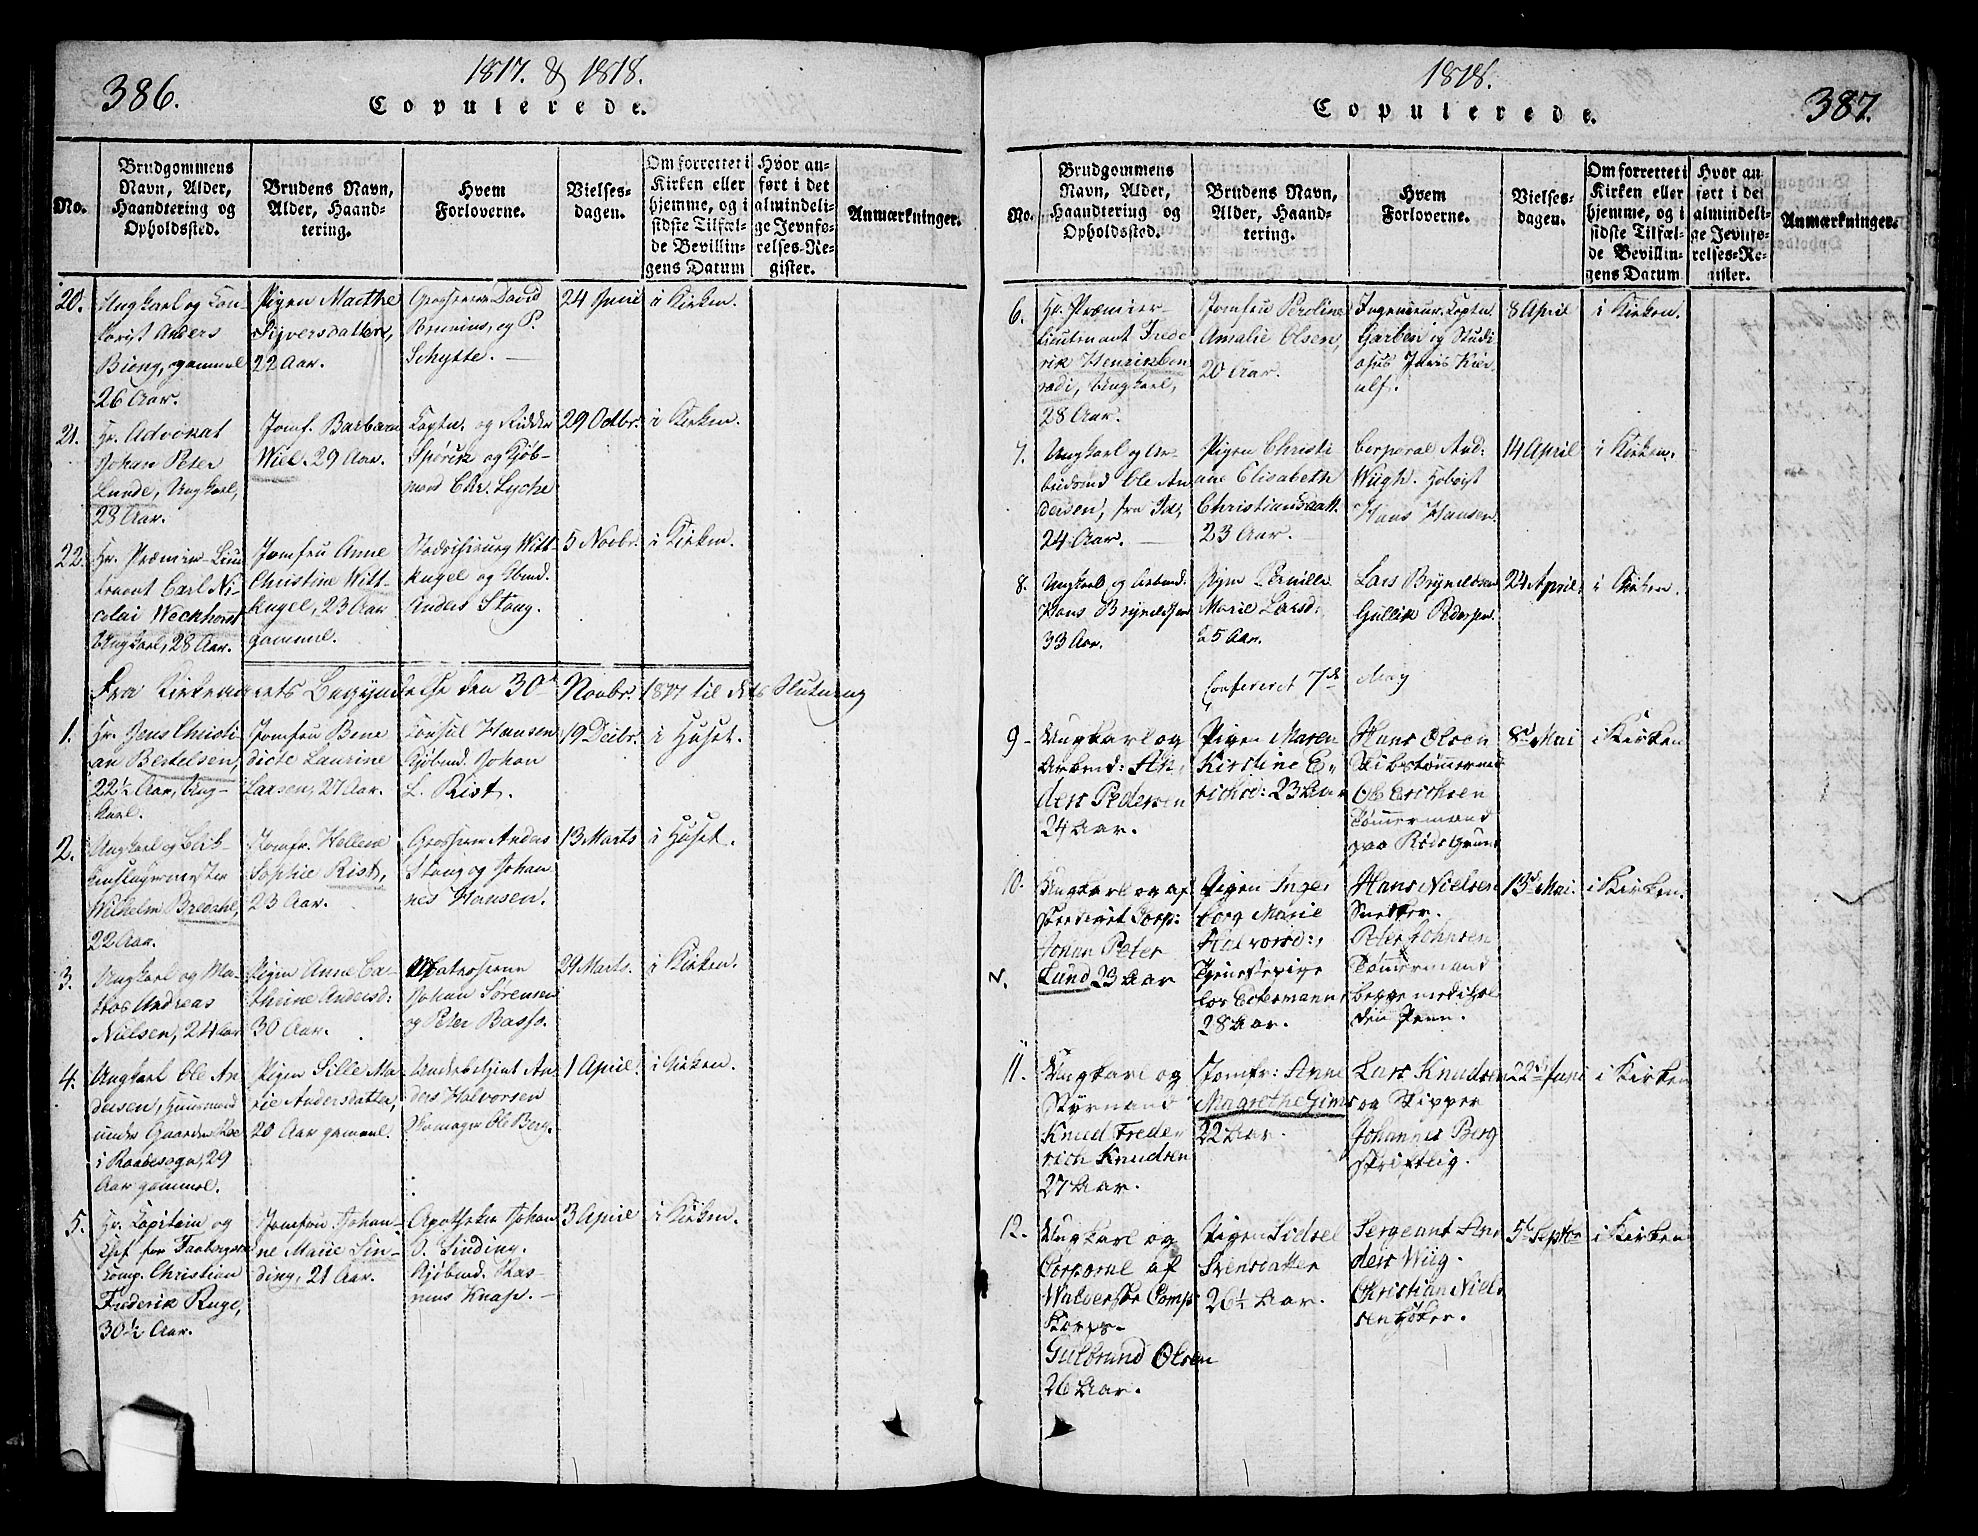 386.
1817. & 1818.
Copulerede.
No.
Brudgommens
Navn, Alder,
Haandtering og
Opholdssted.
Brudens Navn,
Alder, Haand-
tering.
Hvem
Forloverne.
Vielses-
dagen.
Om forrettet i
Kirken eller
hjemme, og i
sidste Tilfæl-
de Bevillin-
gens Datum
Hvor an-
ført i det
almindeli-
ge Jevnfø-
relses-Re-
gister.
Anmærkninger.
20.
Ungkarl og
Anders
Biong, gammel
26 Aar.
Pigen Marthe
Sijversdatter,
22 Aar.
Grosserer David
og P.
Schytte.
24 Juni
i Kirken.
21.
Hr. Advokat
Johan Peter
Lunde, Ungkarl,
28 Aar.
Jomf. Barbara
Wiel, 29 Aar.
Captn. og Ridder
Spørck og Kjöb-
mand Chr. Lycke
29 Octbr.
i Kirken.
22.
Hr. Præmier-Lieu-
tenant Carl Ni-
colai Weckhorst
Ungkarl, 28 Aar.
Jomfru Anne
Christine Witt-
kugel, 23 Aar
gammel.
Witt-
kugel og Kbmd.
Anders Stang.
5 Novbr.
i Kirken.
Fra Kirkeaarets Begyndelse den 30te Novbr. 1817 til dets Slutning
1.
Hr. Jens Christi-
an Bertelsen,
22½ Aar, Ung-
karl.
Jomfru Bene
dicte Laurine
Larsen, 27 Aar.
Consul Hansen
Kjöbmd. Johan
L. Rist.
19 Decbr.
i Huset.
2.
Ungkarl og Blik-
kenslagermester
Wilhelm Bredahl,
22 Aar.
Jomfr. Hellene
Sophie Rist,
23 Aar.
Grosserer Anders
Stang og Johan
nes Hansen.
13 Marts
i Huset.
3.
Ungkarl og Ma-
tros Andreas
Nielsen, 24 Aar
Pigen Anne Ca-
thrine Andersd:
30 Aar.
Matroserne
Johan Sörensen
og Peter Basso.
29 Marts.
i Kirken.
4.
Ungkarl Ole An-
dersen, Huusmand
under Gaarden
i Raadesogn, 29
Aar gammel.
Pigen Sille Ma-
rie Andersdatter,
20 Aar gammel.
An-
ders Halvorsen
Skomager Ole Berg.
1 April.
i Kirken.
5.
Hr. Capitain og
Chef for
Comp. Christian
Frederik Ruge,
30½ Aar.
Jomfru Johan-
ne Marie Sin-
ding, 21 Aar.
Apotheker Johan
O. Sinding.
Kjöbmd. Ras-
mus Knap.
3 April
i Kirken.
1818.
387.
Copulerede.
No.
Brudgommens
Navn, Alder,
Haandtering og
Opholdssted.
Brudens Navn,
Alder, Haand-
tering.
Hvem
Forloverne.
Vielses-
dagen.
Om forrettet i
Kirken eller
hjemme, og i
sidste Tilfæl-
de Bevillin-
gens Datum.
Hvor an-
ført i det
almindeli-
ge Jevnfø-
relses-Re-
gister.
Anmærkninger.
6.
Hr. Præmier-
Lieutenant Frede
rik Henrik
Ungkarl,
28 Aar.
Jomfru Peroline
Amalie Olsen,
20 Aar.
Ingenieur. Captn.
Garben og Studi
osus
8 April
i Kirken.
7.
Ungkarl og Ar-
beidsmd Ole An
dersen, fra Id,
24 Aar.
Pigen Christi
ane Elisabeth
Christiansdatt.
23 Aar.
Corporal And:
Wiigh. Hoboist
Hans Hansen.
14 April
i Kirken.
8.
Ungkarl og Arbmd.
Hans Brynildsen
33 Aar.
Pigen Pernille
Marie Larsd:
25 Aar.
Lars Brynildsen
Gullik Pedersen
24 April.
i Kirken.
Confereret 7de May
9
Ungkarl og
Arbmd: An-
ders Pedersen
24 Aar.
Pigen Maren
Kirstine E-
richsd: 23 Aar
Hans Olsen
Skibstømmermd
Ole Erichsen
Tömmermand
paa Rödsgrund
8d Mai
i Kirken
10.
Ungkarl og af
skediget Corp:
Johan Peter
Lund 23 Aar
N.
Pigen Inge
borg Marie
Halvorsd:,
Tjenestepige
hos Eckermann,
28 Aar.
Hans Nielsen
Snedker.
Peter Johnsen
Tömmermand
begge med ihol
den Penn.
13d Mai.
i Kirken.
11.
Ungkarl og
Styrmand
Knud Frede-
rich Knudsen
27 Aar.
Jomfr: Anne
Magrethe Gims
22 Aar.
Lars Knudsen
og Skipper
Johannes Berg
skriftlig.
22d Juni
i Kirken
12.
Ungkarl og
Corporal af
Walversøe Comp
Korps-
Gulbrand Olsen
26 Aar.
Pigen Sidsel
Svensdatter
26½ Aar.
Sergeant An
ders Wiig.
Christian Niel
sen Høker.
5te Septbr
i Kirken